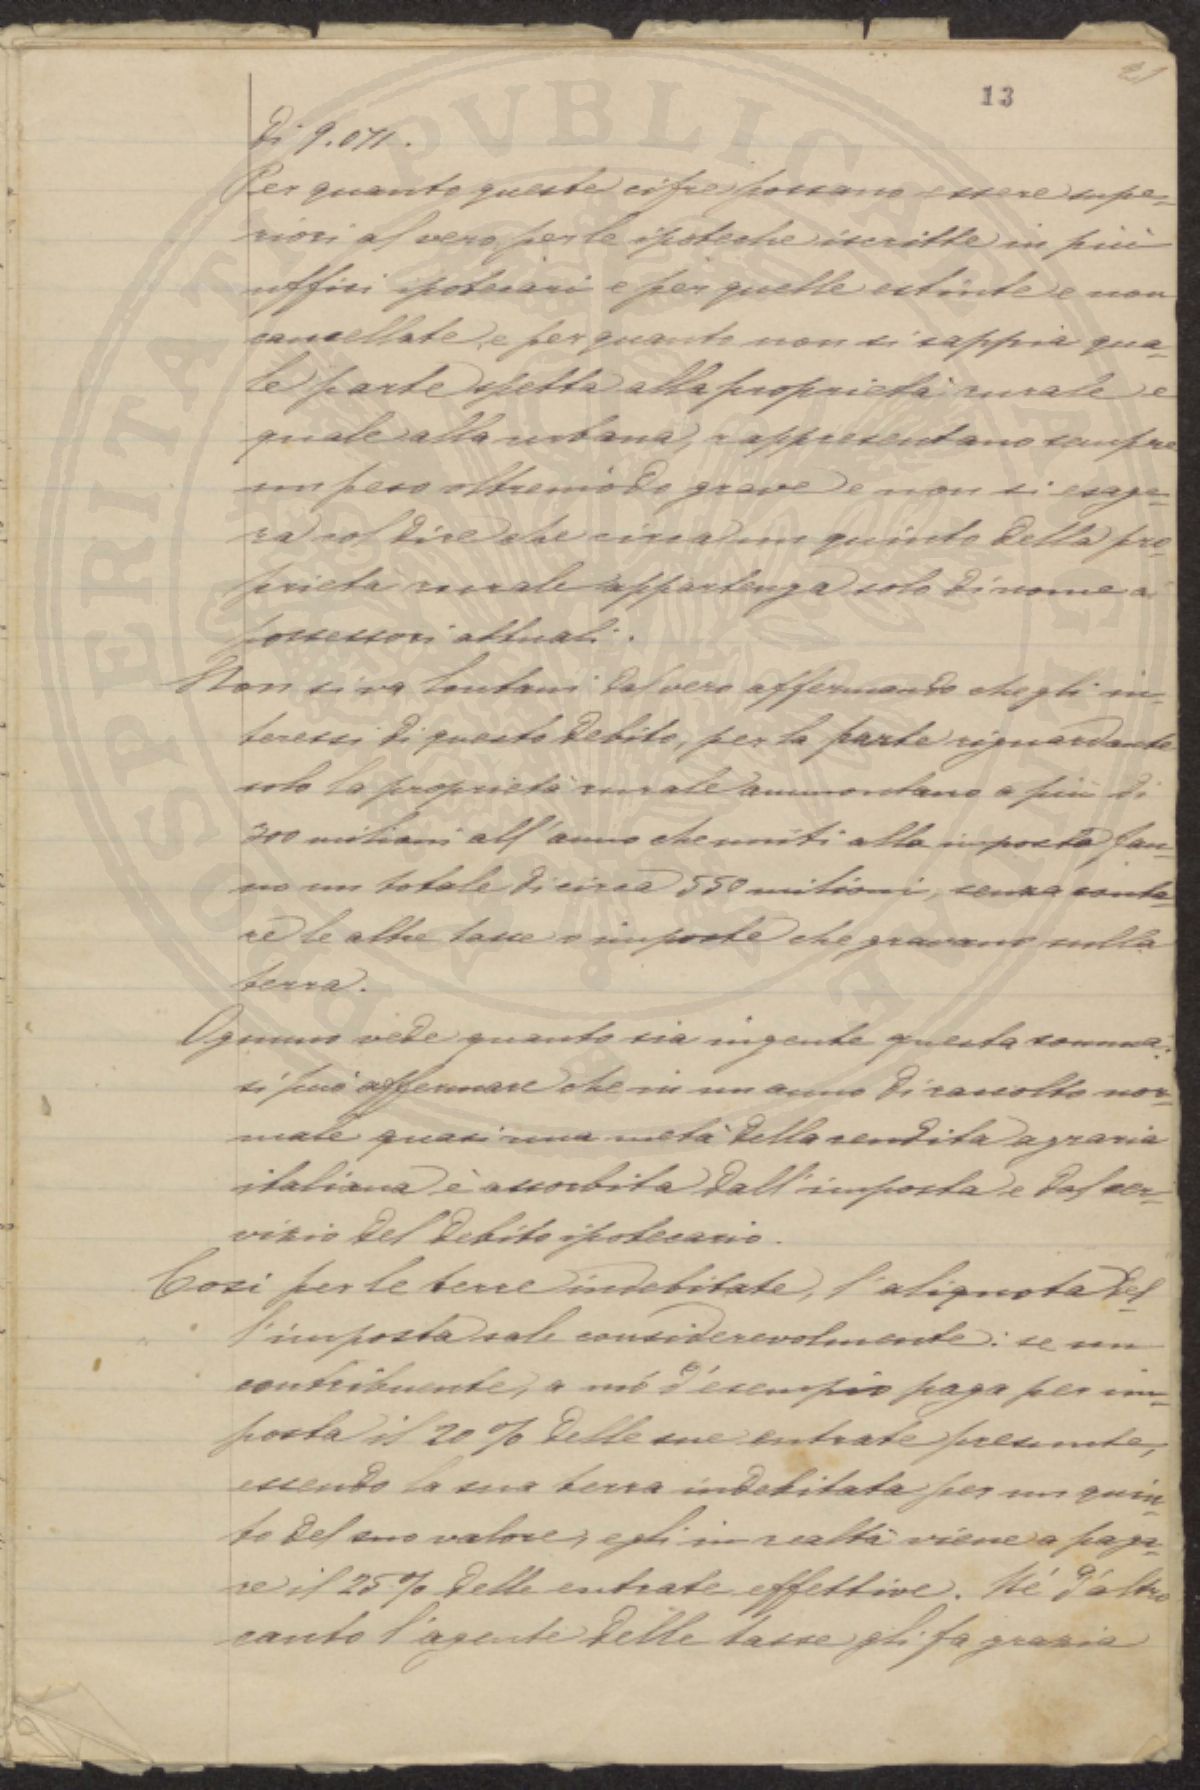 21
13
di 9.071.
Per quanto queste cifre possano essere supe-
riori al vero, per le ipoteche iscritte in più
uffici ipotecari e per quelle estinte e non
cancellate, e per quanto non si sappia qua-
le parte spetta alla proprietà rurale e
quale alla urbana, rappresentano sempre
un peso oltremodo grave e non si esage-
ra col dire che circa un quinto della pro-
prietà rurale appartenga solo di nome a'
possessori attuali.
Non si va lontani dal vero affermando che gli in-
teressi di questo debito, per la parte riguardante
solo la proprietà rurale ammontano a più di
300 milioni all'anno che uniti alla imposta fan-
no un totale di circa 550 milioni, senza conta-
re le altre tasse o imposte che gravano sulla
terra.
Ognuno vede quanto sia ingente questa somma:
si può affermare che in un anno di raccolto nor-
male quasi una metà della rendita agraria
italiana è assorbita dall'imposta e dal ser-
vizio del debito ipotecario.
Così per le terre indebitate, l'aliquota del-
l'imposta sale considerevolmente: se un
contribuente, a mo' d'esempio paga per im-
posta il 20% delle sue entrate presunte,
essendo la sua terra indebitata per un quin-
to del suo valore, egli in realtà viene a paga-
re il 25% delle entrate effettive. Né d'altro
canto l'agente delle tasse gli fa grazia
PUBLICAE
PROSPERITATI